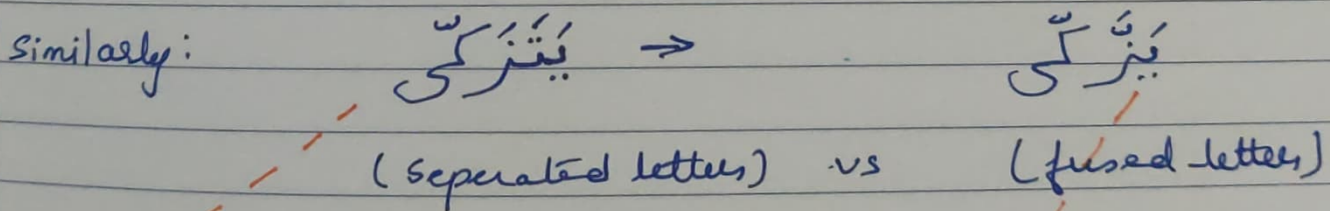 Similarly: يَتَزَكَّى → يَزَّكَّى
(seperated letters) vs (fused letters)